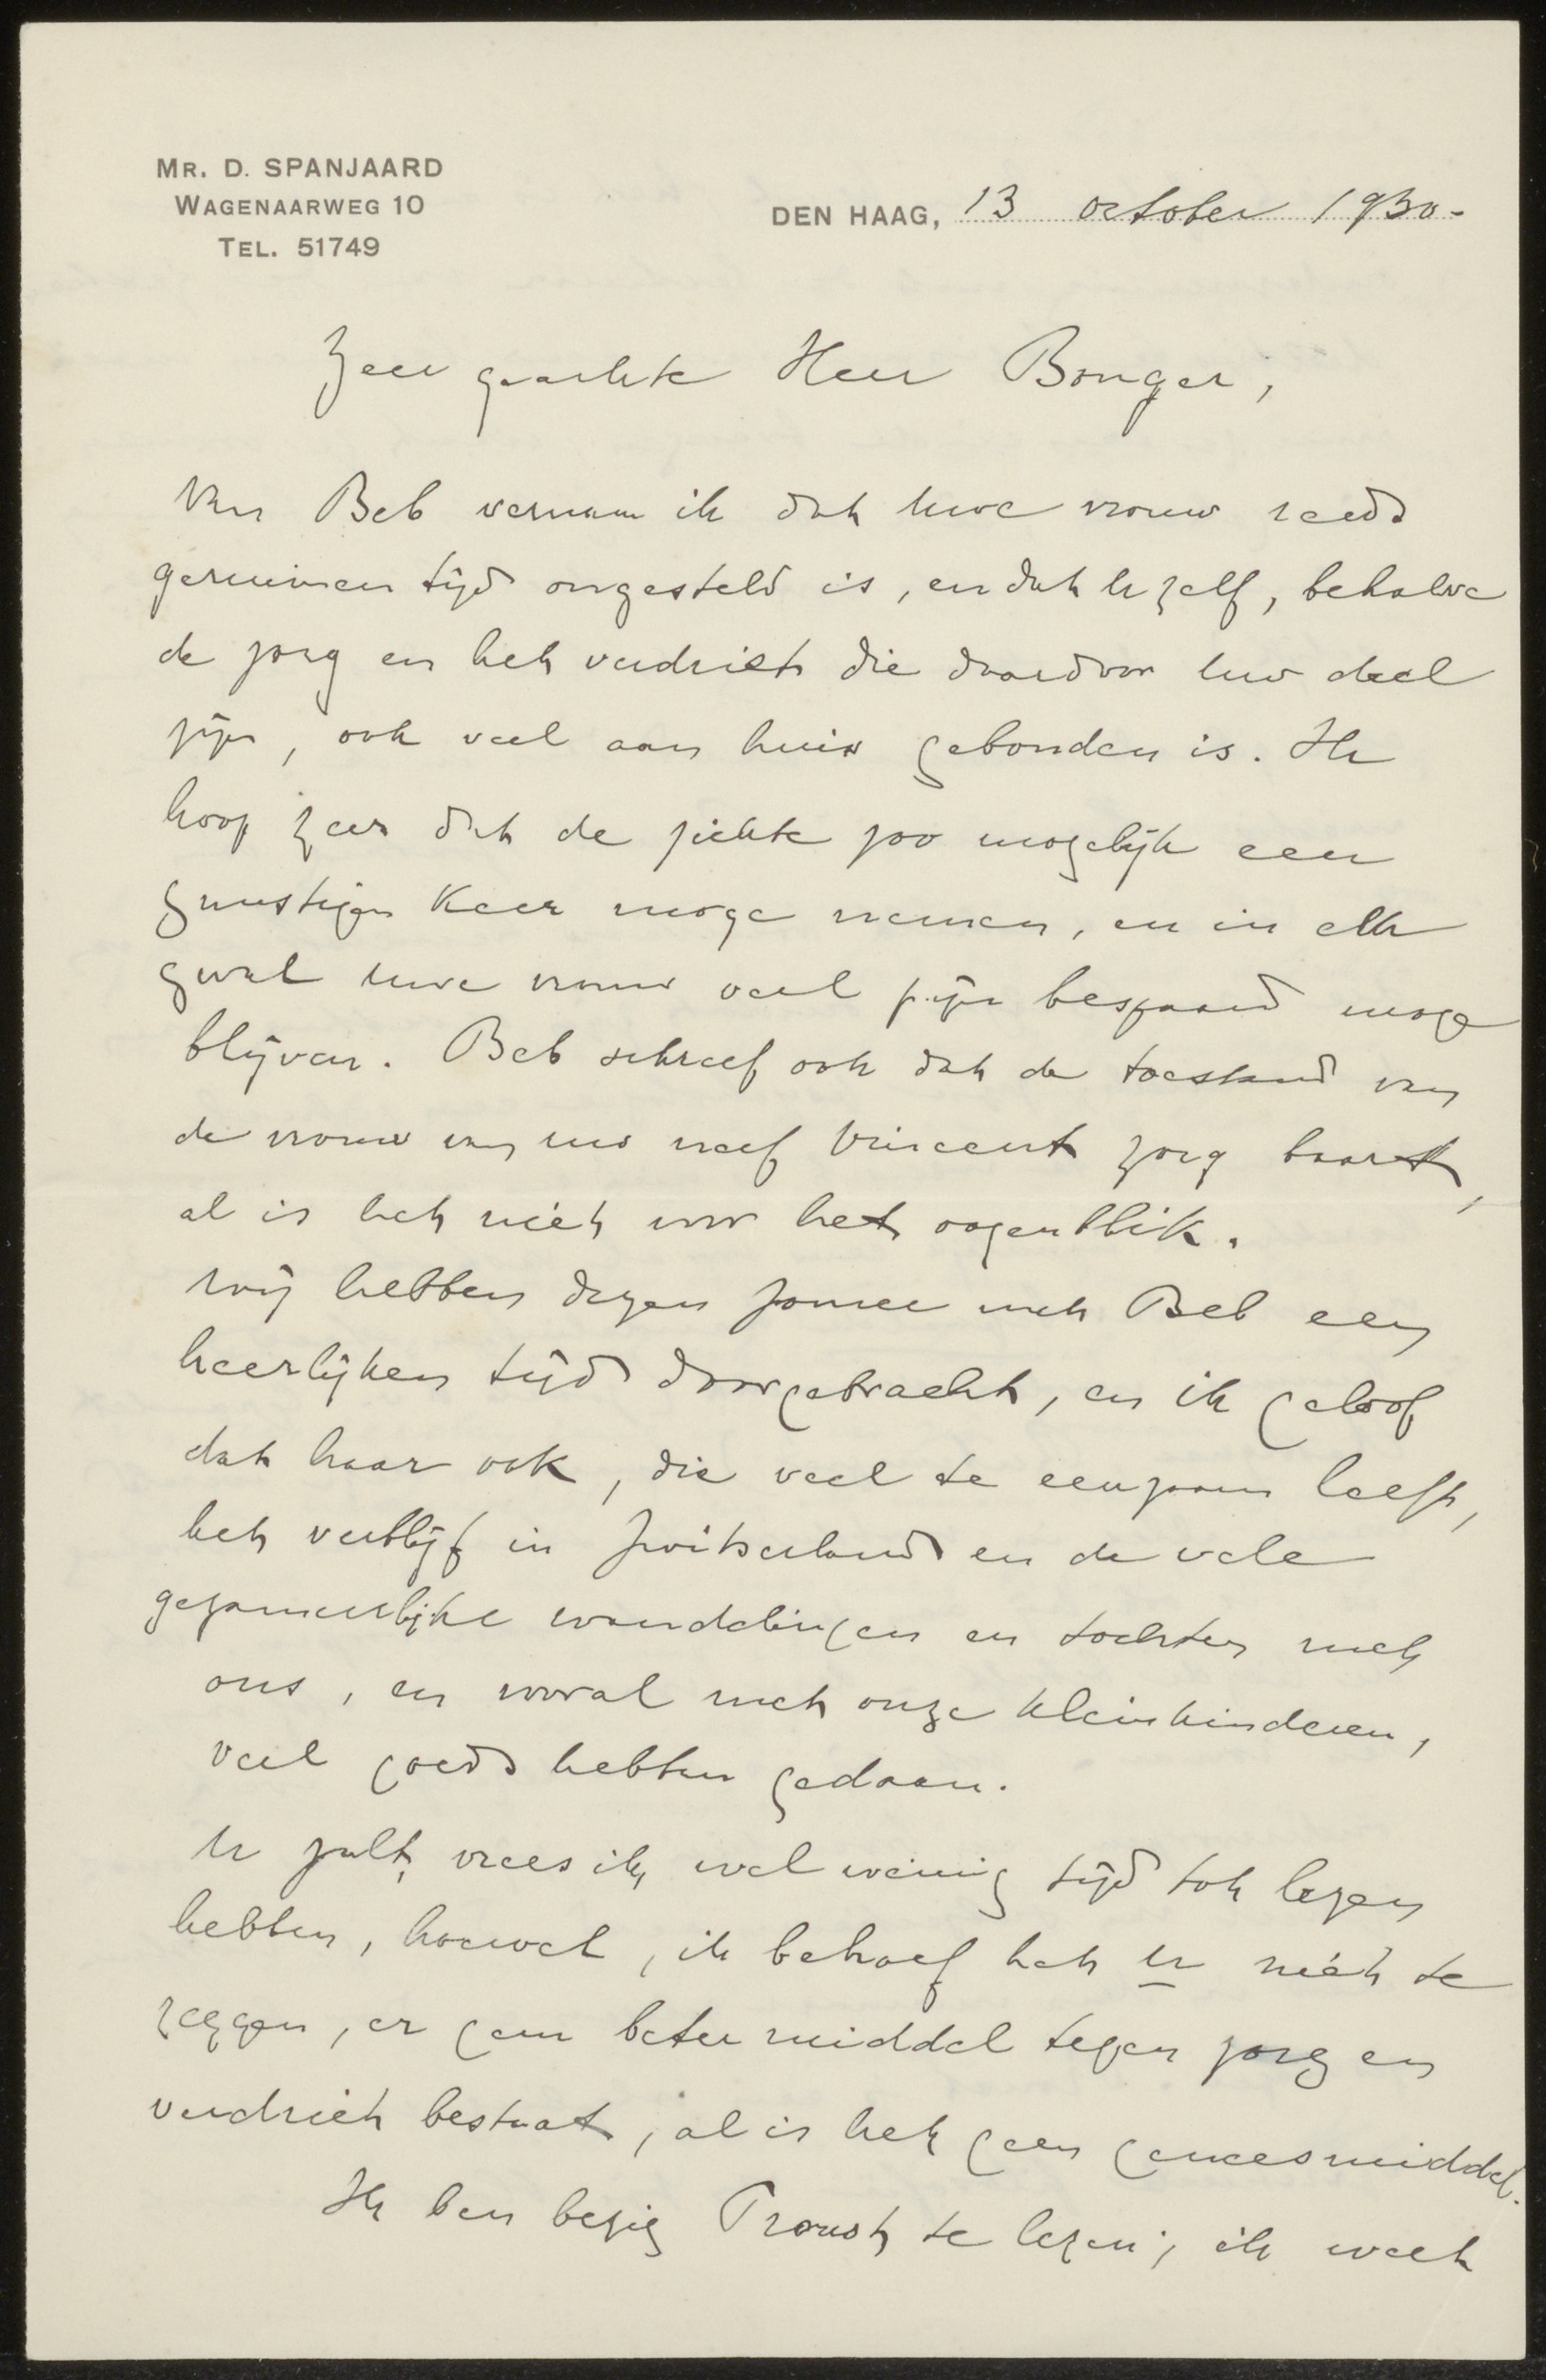 MR. D. SPANJAARD
WAGENAARWEG 10
TEL. 51749
DEN HAAG, 13 october 1930.
Zeer geachte Heer Bonger,
Van Beb vernam ik dat Uwe vrouw reeds
geruimen tijd ongesteld is, en dat U zelf, behalve
de zorg en het verdriet die daardoor Uw deel
zijn, ook veel aan huis gebonden is. Ik
hoop zeer dat de ziekte zoo mogelijk een
gunstigen keer moge nemen, en in elk
geval Uwe vrouw veel pijn bespaard moge
blijven. Beb schreef ook dat de toestand van
de vrouw van Uw neef Vincent zorg baart,
al is het niet voor het oogenblik.
Wij hebben dezen zomer met Beb een
heerlijken tijd doorgebracht, en ik geloof
dat haar ook, die veel te eenzaam leeft,
het verblijf in Zwitserland en de vele
gezamenlijke wandelingen en tochten met
ons, en vooral met onze kleinkinderen,
veel goeds hebben gedaan.
U zult, vrees ik, wel weinig tijd tot lezen
hebben, hoewel, ik behoef het U niet te
zeggen, er geen beter middel tegen zorg en
verdriet bestaat, al is het geen geneesmiddel.
Ik ben bezig Proust te lezen; ik weet